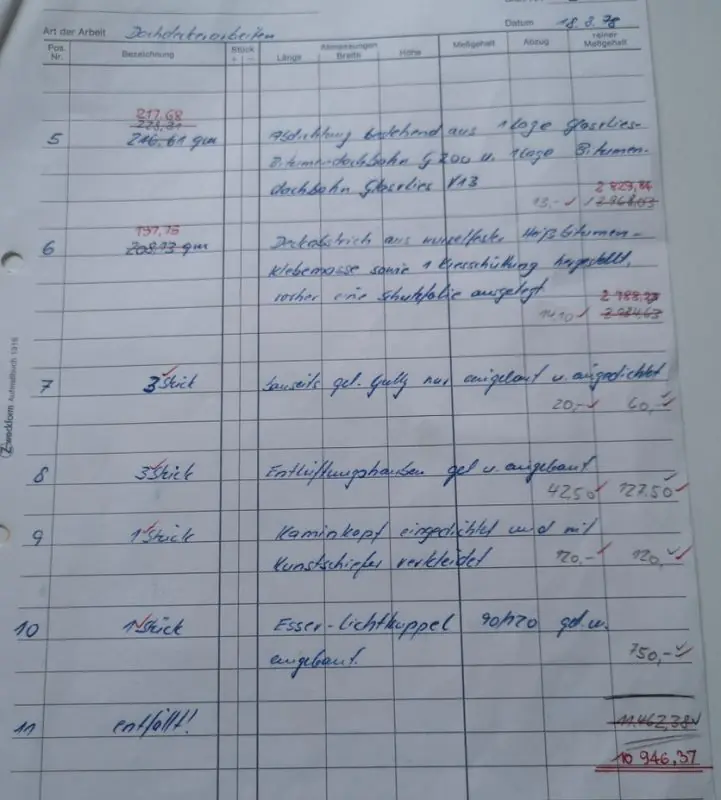 Datum 18.3.78
Art der Arbeit Dachdeckerarbeiten
Pos. Nr. Bezeichnung Stück + − Abmessungen Länge Breite Höhe Meßgehalt Abzug reiner Meßgehalt
217,68
228,31
5 216.61 qm Abdichtung bestehend aus 1 Lage Glasvlies-
Bitumendachbahn G 200 u. 1 Lage Bitumen-
dachbahn Glasvlies V13
2 829,84
13,- 2 968,03
197,75
6 208.13 qm Deckabstrich aus Heißbitumen-
klebemasse sowie 1 Kiesschüttung hergestellt,
vorher eine Schutzfolie ausgelegt
2 788,27
14,10 2 934,63
7 3 Stück bauseits gel. Gully nur eingebaut u. eingedichtet
20,- 60,-
8 3 Stück Entlüftungshauben gel u. eingebaut
42,50 127.50
9 1 Stück Kaminkopf eingedichtet und mit
Kunstschiefer verkleidet 120,- 120,-
10 1 Stück Esser-Lichtkuppel 90/120 gel. u.
eingebaut. 750,-
11 entfällt! 11.462,38
10 946,37
Zweckform Aufmaßbuch 1316